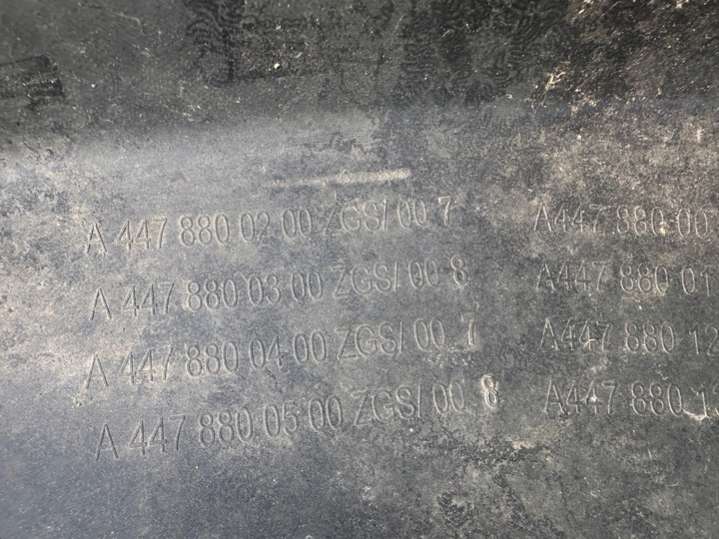 A 447 880 02 00 ZGS/00 7 A447 880 00
A 447 880 03 00 ZGS/00 8 A447 880 01
A 447 880 04 00 ZGS/00 7 A447 880 12
A 447 880 05 00 ZGS/00 8 A447 880